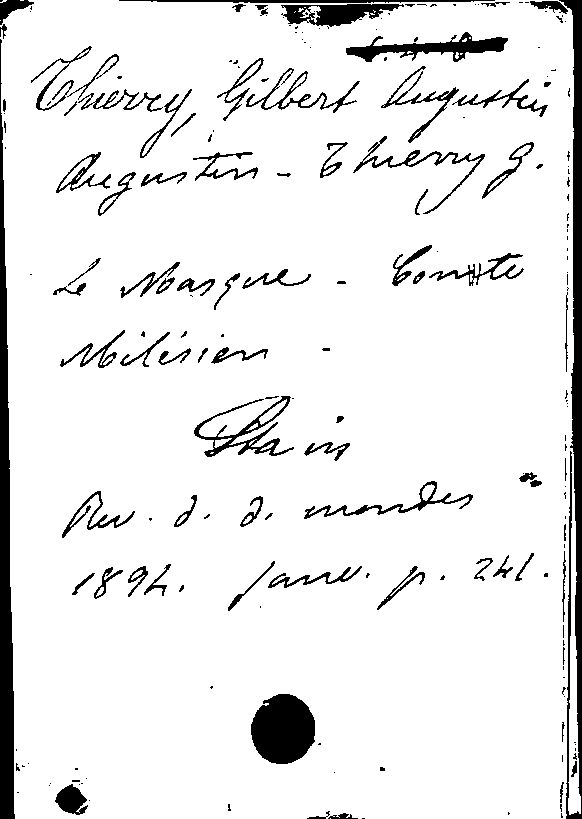 Thierry, Gilbert Augustin
Augustin - Thierry G.
Le Masque - Conte
Milésien -
Paris
Rev. d. d. mondes
1894. janv. p. 241.